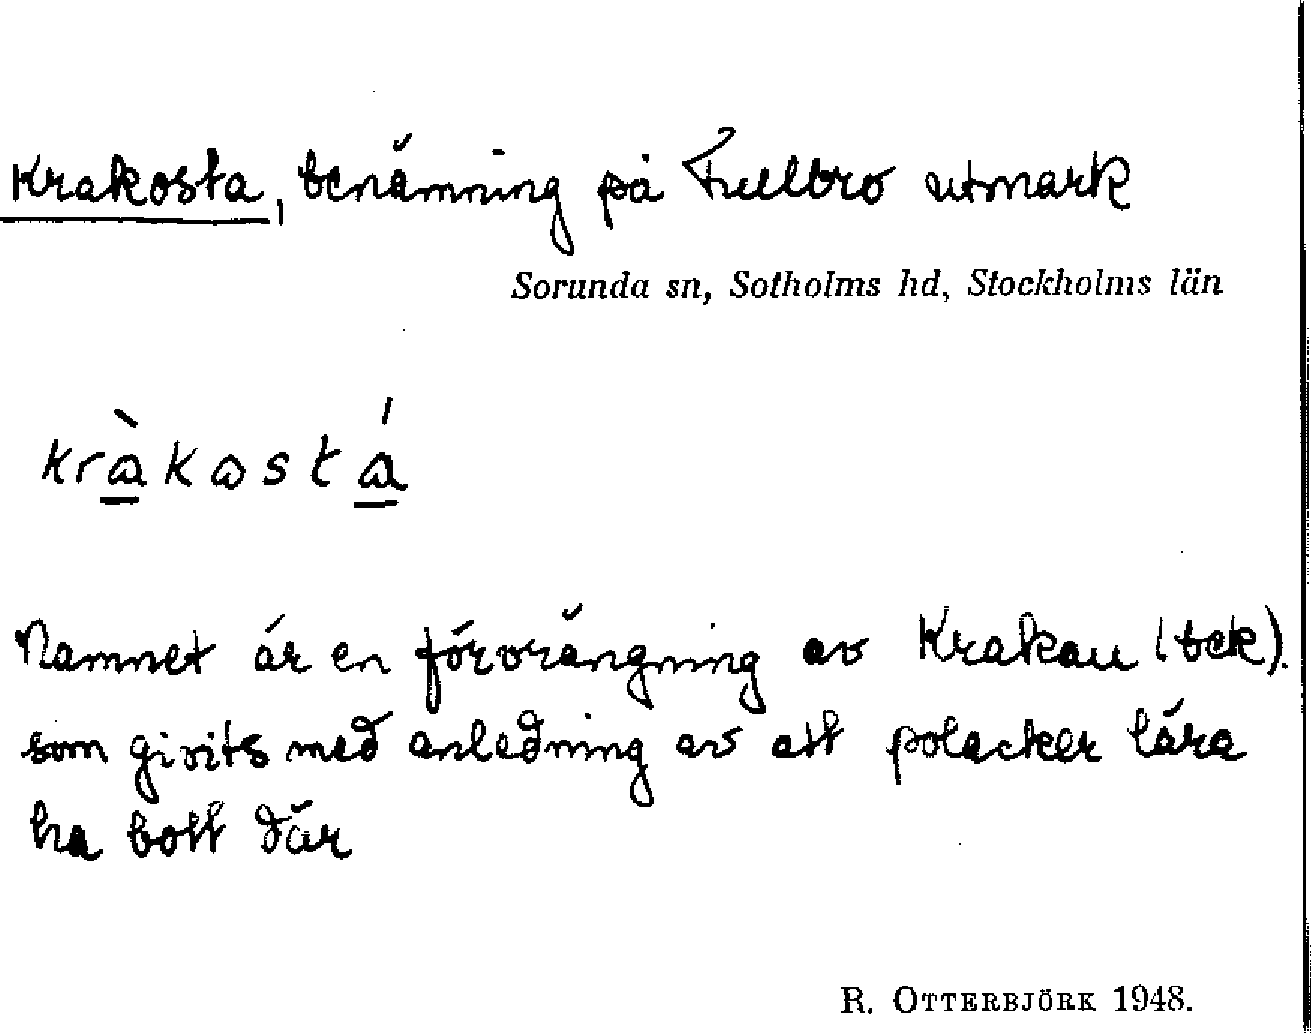 Krakosta, benämning på Fullbro utmark
Sorunda sn, Sotholms hd, Stockholms län
kràkostá
Namnet är en förvrängning av Krakau (bek).
som givits med anledning av att polacker lära
ha bott där
R. OTTERBJÖRK 1948.